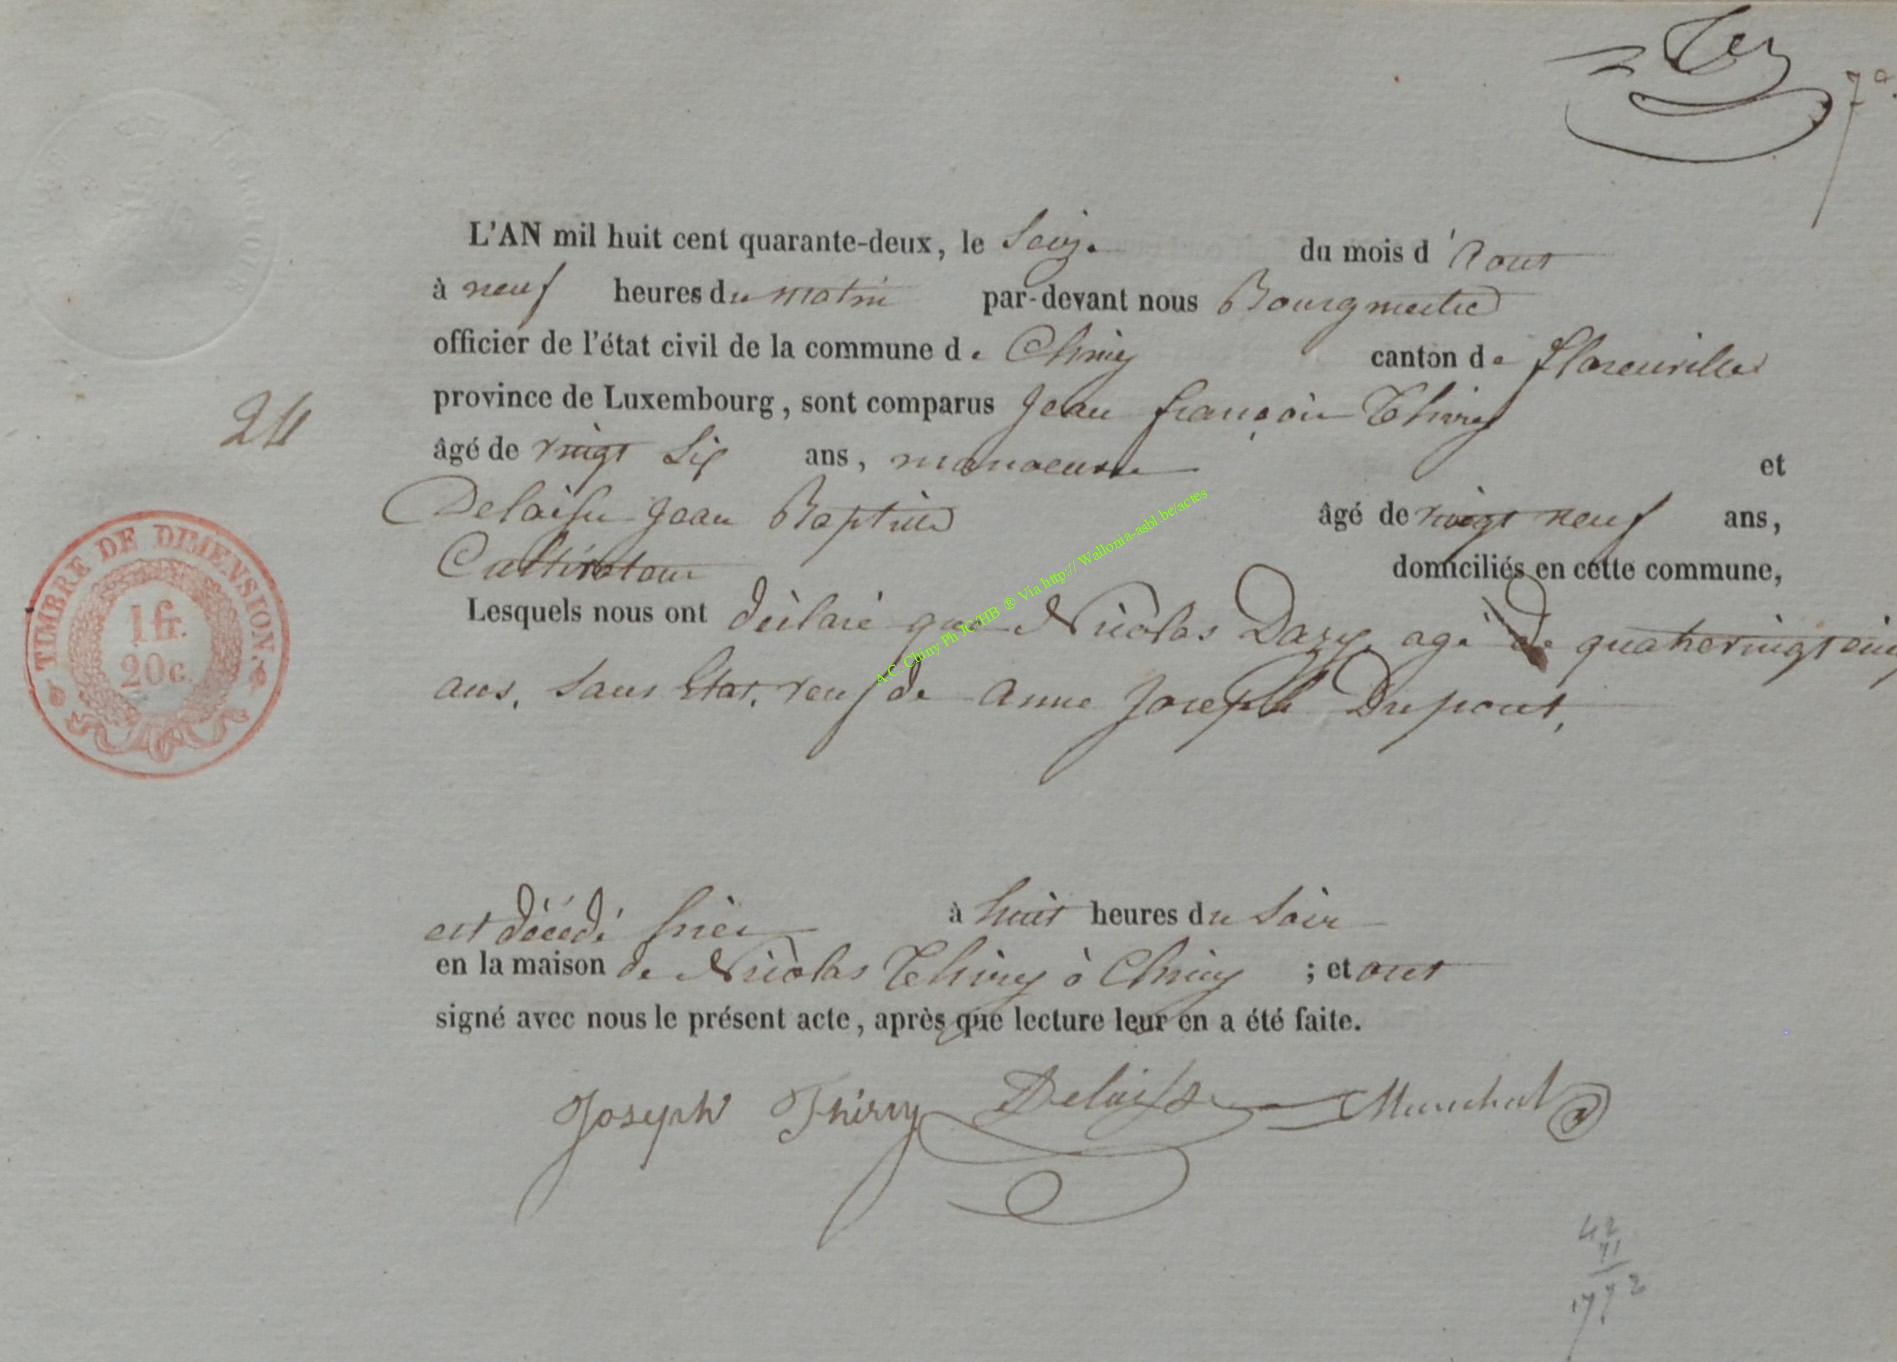 7º
L'AN mil huit cent quarante-deux, le Seize du mois d'Aout
à neuf heures du matin par-devant nous Bourgmestre
officier de l'état civil de la commune de Chiny canton de florenville
province de Luxembourg, sont comparus Jean françois Thiry
âgé de vingt Six ans, manoeuvre et
Delaisse Jean Baptiste âgé de vingt neuf ans,
Cultivateur domiciliés en cette commune,
Lesquels nous ont déclaré que Nicolas Dazy agé de quatrevingt cinq
ans, sans Etat, veuf de anne Joseph Dupont,
24
TIMBRE DE DIMENSION.
1 fr.
20c.
est décédé hier à huit heures du Soir
en la maison de Nicolas Thiry à Chiny ; et ont
signé avec nous le présent acte, après que lecture leur en a été faite.
Joseph Thiry Delaisse Marechal
42
71
1772
A.C. Chiny Ph JC HB ® Via http://Wallonia-asbl.be/actes